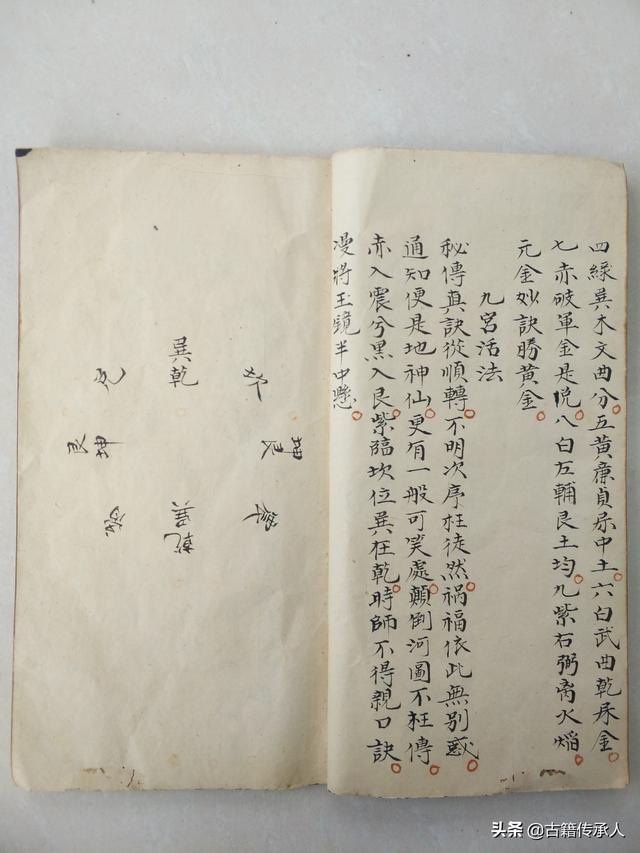 四緑巽木文曲分五黃廉貞属中土六白武曲乾属金
七赤破軍金是悦八白左輔艮土均九紫右弼离火焰
元金妙訣勝黃金
九宮活法
秘傳真訣從順轉不明次序枉徒然禍福依此無別惑
通知便是地神仙更有一般可笑處顛倒河圖不枉傳
赤入震兮黑入艮紫臨坎位巽枉乾時師不得親口訣
漫將玉鏡半中懸
坤艮
巽乾
乾巽
艮坤
头条 @古籍传承人